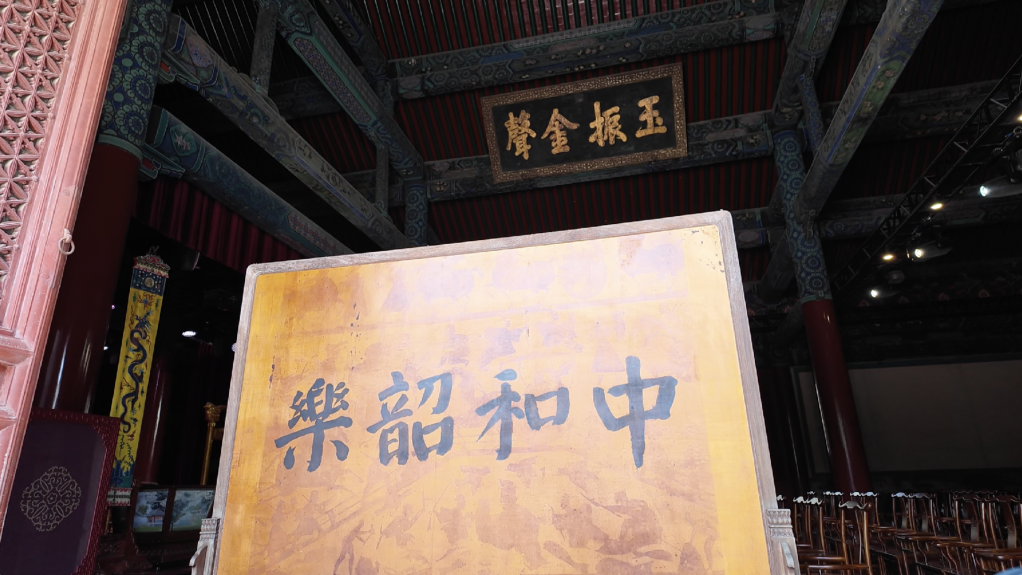 玉振金聲
中和韶樂